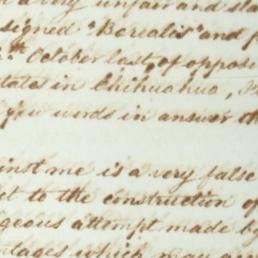 a very unfair and sla
signed "Borealis" and p
th October last, of oppose
state in Chihuahua,
few words in answer th
inst me is a very false
et to the construction of
geous attempt made by
tages which may